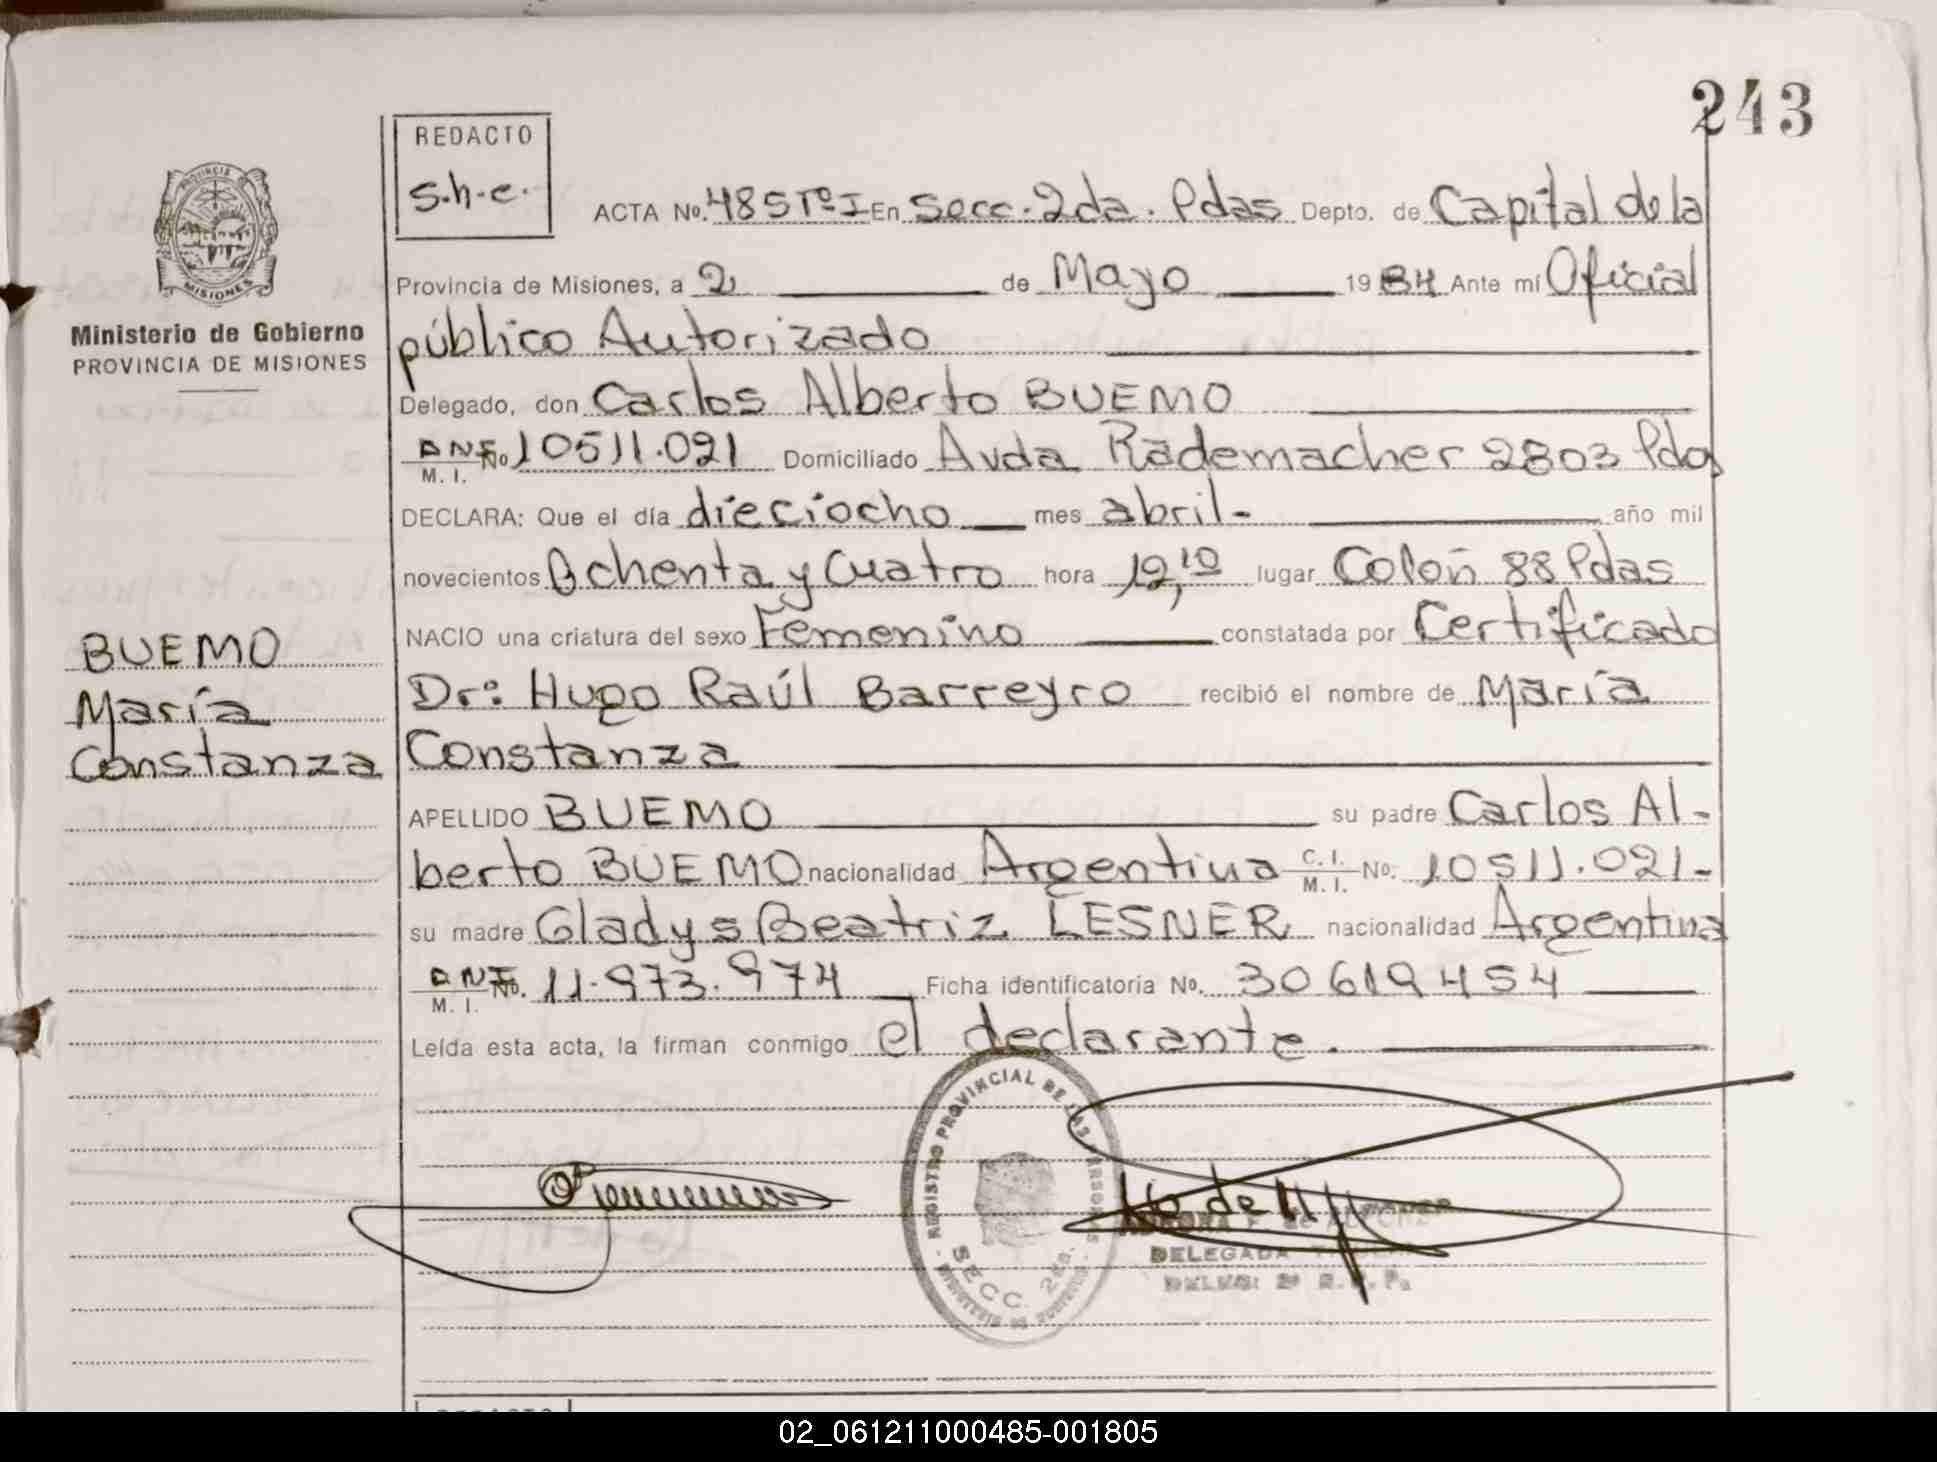 243
REDACTO
s.h.e.
PROVINCIA
MISIONES
Ministerio de Gobierno
PROVINCIA DE MISIONES
ACTA No. 485 Tº I En Secc. 2da. Pdas Depto. de Capital de la
Provincia de Misiones, a 2 de Mayo 1984 Ante mí Oficial
público Autorizado
Delegado, don Carlos Alberto BUEMO
DNI M. I. No 10511.021 Domiciliado Avda Rademacher 2803 Pdas
DECLARA: Que el día dieciocho mes abril- año mil
novecientos Ochenta y Cuatro hora 12,10 lugar Colón 88 Pdas
NACIO una criatura del sexo Femenino constatada por Certificado
Dr: Hugo Raúl Barreyro recibió el nombre de María
Constanza
BUEMO
María
Constanza
APELLIDO BUEMO su padre Carlos Al-
berto BUEMO nacionalidad Argentina C. I. M. I. No. 10511.021-
su madre Gladys Beatriz LESNER nacionalidad Argentina
DNI M. I. No. 11.973.974 Ficha identificatoria No. 30619454
Leída esta acta, la firman conmigo el declarante.
REGISTRO PROVINCIAL DE LAS PERSONAS
SECC. 2da.
MINISTERIO DE GOBIERNO
DELEGADA
REDACTO
02_061211000485-001805